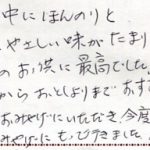 中にほんのりと
やさしい味がたまり
のお供に最高でした
からおとしよりまでおす
おみやげにいただき今度
みやげにもできました